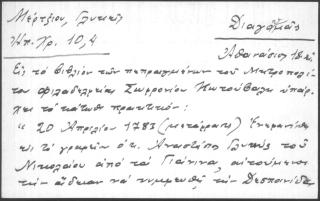 Μέρτζιου, Γλυκεῖς
Διαγωμᾶς
Ἠπ. Χρ. 10, 4
Ἀθανάσιος 18
Εἰς τὸ βιβλίον τῶν πεπραγμένων τοῦ Μητροπολί
του Φιλαδελφείας Σωφρονίου Κουτούβαλη ὑπάρ
χει τὸ κάτωθι πρακτικόν:
" 20 Ἀπριλίου 1783 (μετάφρασις) Ἐνεφανίσθη
εἰς τὸ γραφεῖον ὁ κ. Ἀναστάσης Γλυκῆς τοῦ
Νικολάου ἀπὸ τὰ Γιάννινα, αἰτούμενος
τὴν ἄδειαν νὰ νυμφευθῇ τὴν Δεσποινίδα